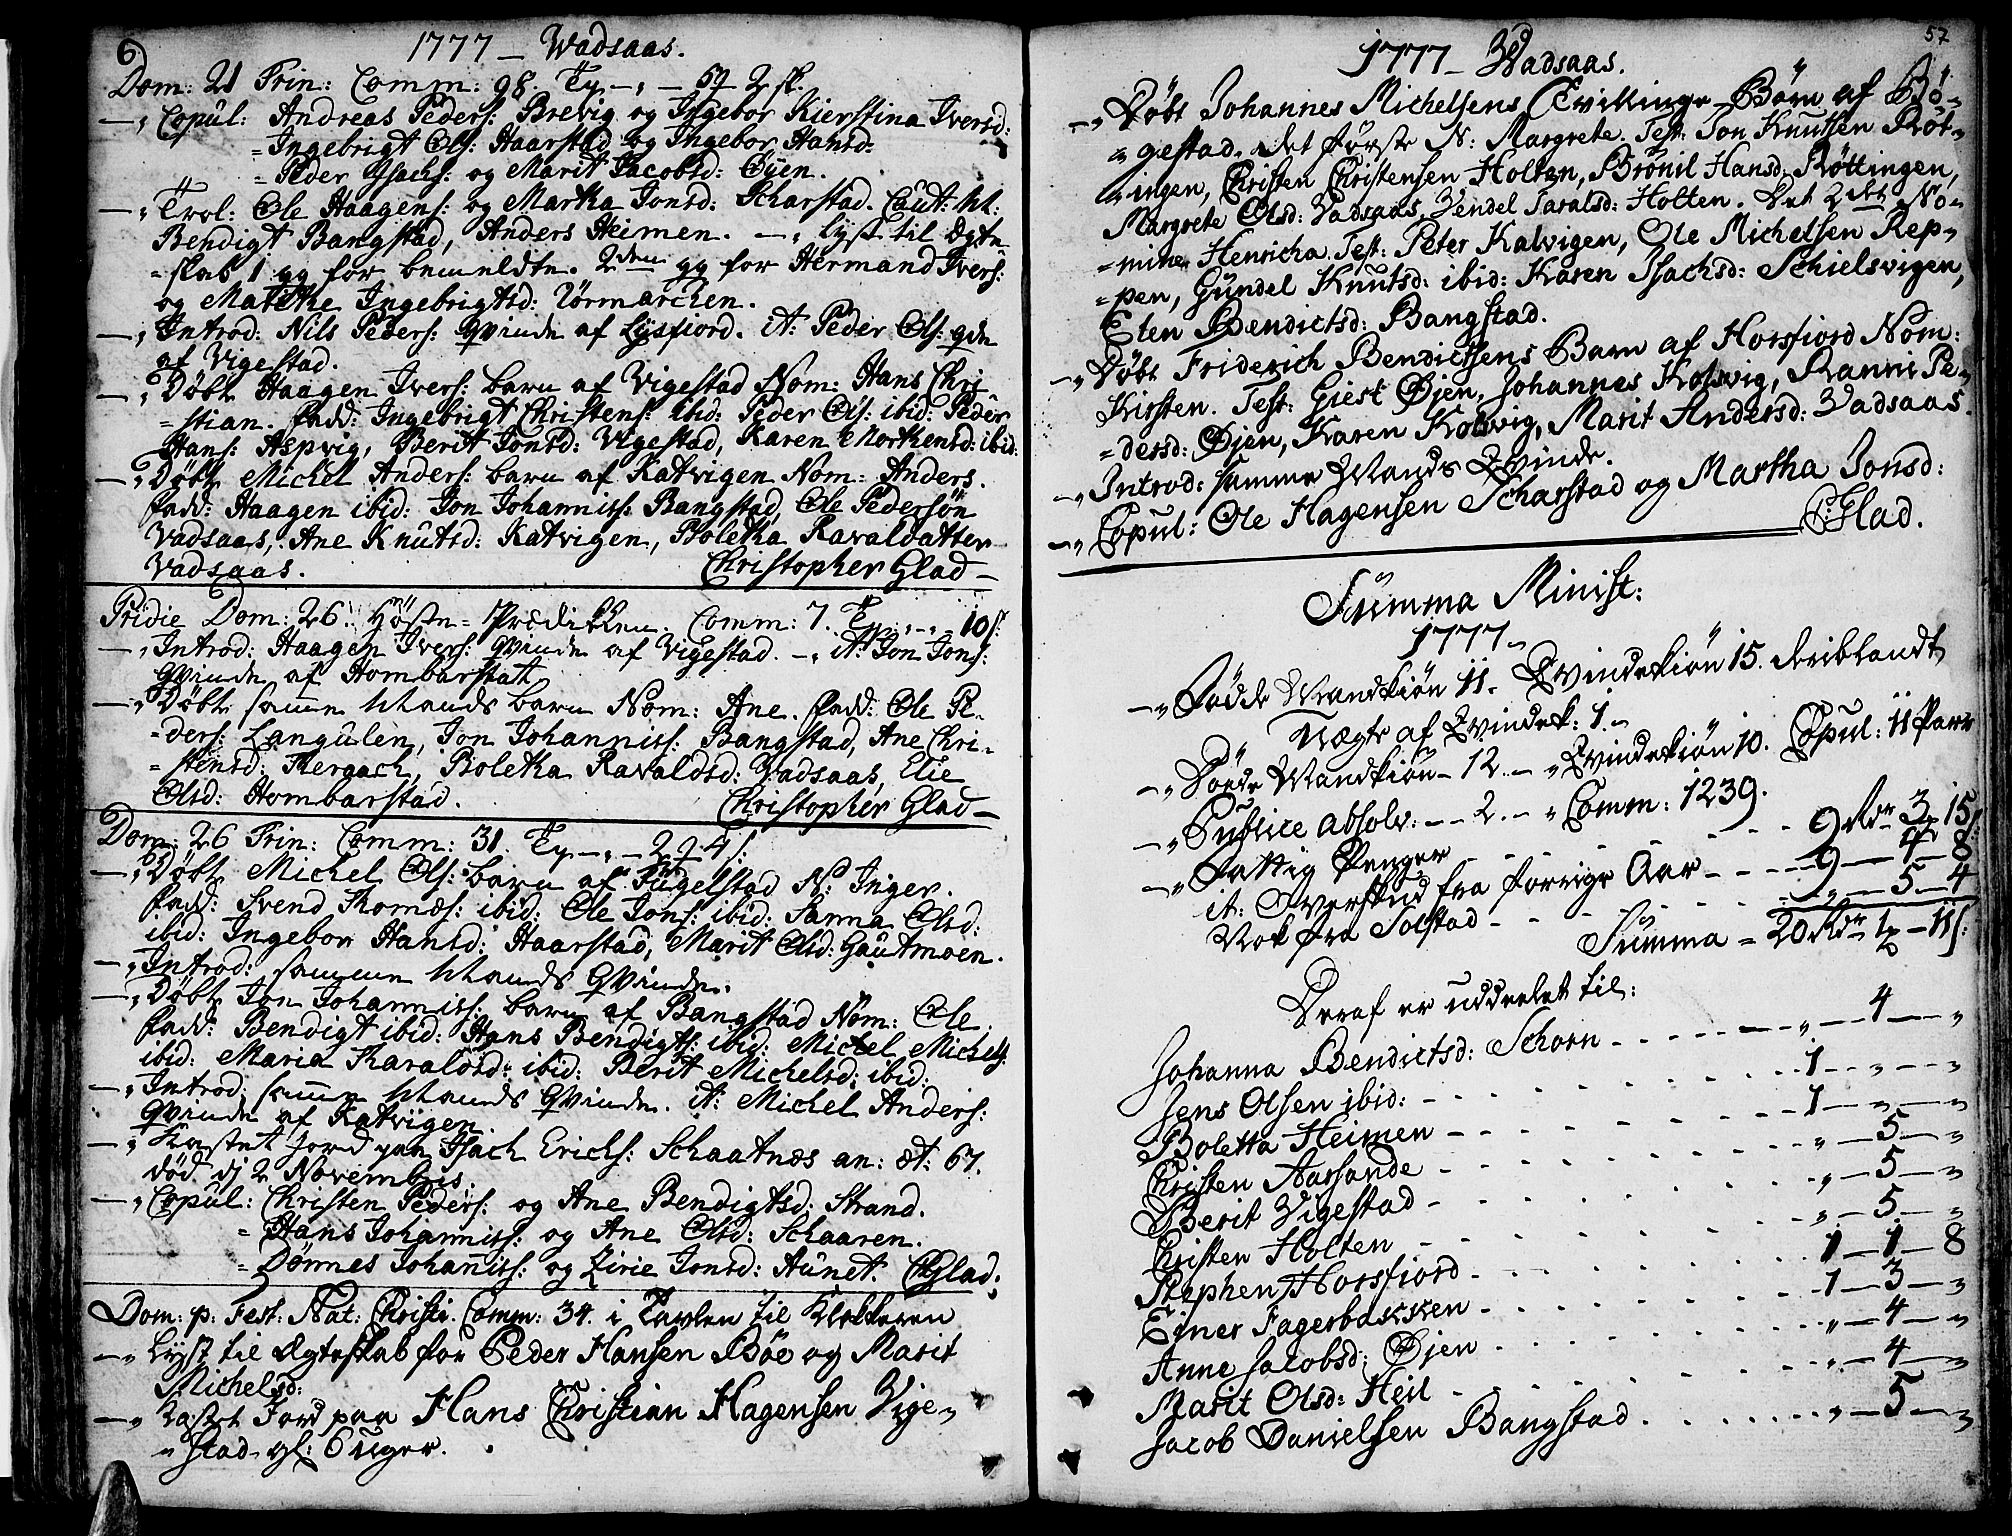 6
1777 – Wadsaas.
Dom: 21 Trin: Comm: 98. T. –„– 5 2 sk.
–„ Copul: Andreas Peders: Brevig og Ingebor Kierstina Iversd:
=Ingebrigt Ols: Haarstad og Ingebor Hansd:
=Peder Isachs: og Marit Jacobsd: Øyen.
–„ Trol: Ole Haagens: og Martha Jonsd: Scharstad. Caut: M:
Bendigt Bangstad, Anders Heimen. –„ Lyst til Ægte
=skab 1 gg for bemeldte. 2den gg for Hermand Ivers:
og Mathke Ingebrigtsd: Hörmarchen.
–„ Introd: Nils Peders: Qvinde af Lysfiord. it: Peder Ols: qde
af Vigestad.
–„ Döbt Haagen Ivers: barn af Vigestad Nom: Hans Chri
=stian. fadd: Ingebrigt Christens: ibid: Peder Ols: ibid: Peder
Hans: Aspvig, Berit Jonsd: Vigestad, Karen Morthensd: ibid:
–„ Döbt Michel Anders: barn af Katvigen Nom: Anders.
fadd: Haagen ibid: Jon Johanniss: Bangstad, Ole Pedersön
Vadsaas, Ane Knutsd: Katvigen, Boletha Ravaldatter
Vadsaas. Christopher Glad –
Pridie Dom: 26. Höste=Prædiken. Comm: 7. T –„– 10 s:
–„ Introd: Haagen Ivers: Qvinde af Vigestad. –„ it: Jon Jons:
Qvinde af Hombarstad
–„ Döbt samme Mands barn Nom: Ane. fadd: Ole Pe-
=ders: Langulen, Jon Johanniss: Bangstad, Ane Chri-
=stensd: Hergach, Boletha Ravaldsd: Vadsaas, Elie
Olsd: Hombarstad. Christopher Glad –
Dom: 26 Trin: Comm: 31. T –„– 2 4 s:
–„ Döbt Michel Ols: barn af Fugelstad N: Inger.
fadd: Svend Thomæs: ibid: Ole Jons: ibid: Sanna Olsd:
ibid: Ingebor Hansd: Haarstad, Marit Olsd: Gautmoen.
–„ Introd: samme Mands Qvinde.
–„ Döbt Jon Johanniss: barn af Bangstad Nom: Ole.
fadd: Bendigt ibid: Hans Bendigts: ibid: Michel Michels:
ibid: Maria Haraldsd: ibid: Berit Michelsd: ibid:
–„ Introd: samme Mands Qvinde. it: Michel Anders:
Qvinde af Katvigen.
–„ Kastet Jord paa Isach Erichs: Schaatnæs an: æt: 67.
död dj 2 Novembris.
–„ Copul: Christen Peders: og Ane Bendigtsd: Strand.
=Hans Johanniss: og Ane Olsd: Schaaren.
=Dønnes Johanniss: og Zirie Jonsd: Aunet. CGlad.
Dom: p. Fest: Nat: Christi. Comm: 34. i Tavlen til Klokkeren
–„ Lyst til Ægteskab for Peder Hansen Böe og Marit
Michelsd:
–„ Kastet Jord paa Hans Christian Hagensen Vige-
=stad gl: 6 uger.
57
1777 – Wadsaas.
–„ Döbt Johannes Michelsens Tvillinge-Börn af Bö-
=gestad. det förste N: Margrete. Test: Jon Knutsen Röt-
tingen, Christen Christensen Holten, Brönil Hansd: Röttingen,
Margrete Olsd: Vadsaas, Vendel Taralsd: Holten. Det 2det No-
=mine Henricha. Test: Peter Kalvigen, Ole Michelsen Rep-
=pen, Gundel Knutsd: ibid: Karen Isachsd: Schielsvigen,
Elen Bendictsd: Bangstad.
–„ Döbt Friderich Bendictsens Barn af Horsfiord Nom:
Kirsten. Test: Giert Øjen, Johannes Kolsvig, Ranni Pe-
=dersd: Øjen, Karen Kolsvig, Marit Andersd: Vadsaas.
–„ Introd: samme Mands Qvinde.
–„ Copul: Ole Hagensen Scharstad og Martha Jonsd:
CGlad.
Summa Minist:
1777 –
–„ Födde Mandkiön 11. Qvindekiön 15. deriblandt
Uægte af Qvindek: 1.
–„ Döde Mandkiön – 12. –„ Qvindekiön 10. Copul: 11 Parr
–„ Publice absolv: – – 2. –„ Comm: 1239.
–„ Fattig Penger – – – 9 Rdr 3 15 s:
it: Overskud fra forrige Aar – – – 9 – 4 – 8
Nok fra Solstad – – – „ – 5 – 4
Summa = 20 Rdr 1 – 11 s:
Deraf er uddeelet til:
Johanna Bendictsd: Schorn – – – „ – 4 – „
Jens Olsen ibid: – – – 1 – „ – „
Boletta Heimen – – – 1 – „ – „
Christen Aarsande – – – „ – 5 – „
Berit Vigestad – – – „ – 5 – „
Christen Holten – – – „ – 5 – „
Stephen Horsfiord – – – 1 – 1 – 8
Ejner Fagerbakken – – – 1 – 3 – „
Anne Jacobsd: Øjen – – – „ – 4 – „
Marit Olsd: Heil – – – „ – 4 – „
Jacob Danielsen Bangstad – – – „ – 5 – „